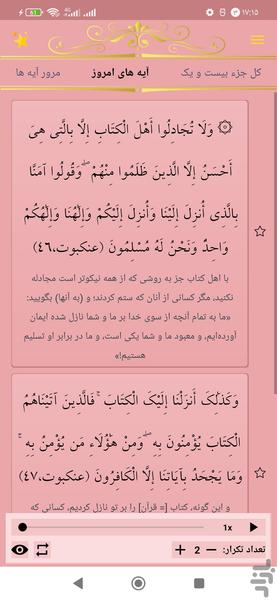 ۱۷:۱۵
کل جزء بیست و یک
آیه های امروز
مرور آیه ها
۞ وَلَا تُجَادِلُوا أَهْلَ الْكِتَابِ إِلَّا بِالَّتِي هِيَ
أَحْسَنُ إِلَّا الَّذِينَ ظَلَمُوا مِنْهُمْ ۖ وَقُولُوا آمَنَّا
بِالَّذِي أُنزِلَ إِلَيْنَا وَأُنزِلَ إِلَيْكُمْ وَإِلَٰهُنَا وَإِلَٰهُكُمْ
وَاحِدٌ وَنَحْنُ لَهُ مُسْلِمُونَ (عنکبوت،۴۶)
با اهل کتاب جز به روشی که از همه نیکوتر است مجادله
نکنید، مگر کسانی از آنان که ستم کردند؛ و (به آنها) بگویید:
«ما به تمام آنچه از سوی خدا بر ما و شما نازل شده ایمان
آورده‌ایم، و معبود ما و شما یکی است، و ما در برابر او تسلیم
هستیم!»
وَكَذَٰلِكَ أَنزَلْنَا إِلَيْكَ الْكِتَابَ ۚ فَالَّذِينَ آتَيْنَاهُمُ
الْكِتَابَ يُؤْمِنُونَ بِهِ ۖ وَمِنْ هَٰؤُلَاءِ مَن يُؤْمِنُ بِهِ ۚ
وَمَا يَجْحَدُ بِآيَاتِنَا إِلَّا الْكَافِرُونَ (عنکبوت،۴۷)
و این گونه، کتاب [= قرآن‌] را بر تو نازل کردیم، کسانی که
1x
تعداد تکرار: + 2 −
بازار